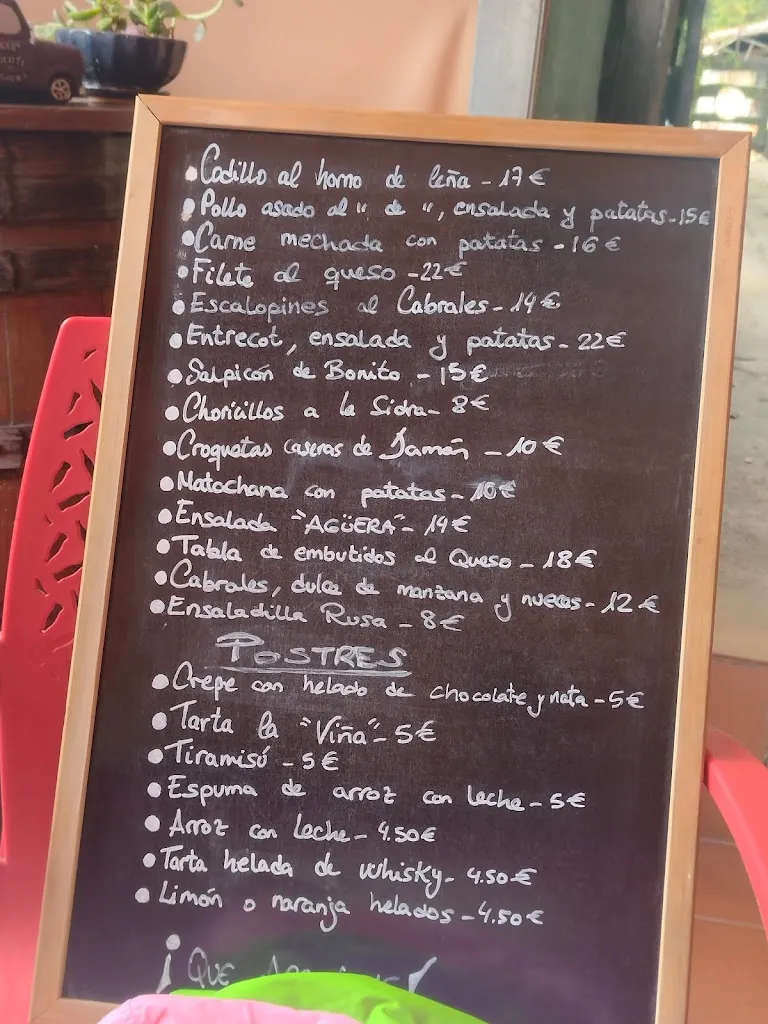 • Codillo al horno de leña - 17€
• Pollo asado al " de ", ensalada y patatas - 15€
• Carne mechada con patatas - 16€
• Filete al queso - 22€
• Escalopines al Cabrales - 14€
• Entrecot, ensalada y patatas - 22€
• Salpicón de Bonito - 15€
• Choricillos a la Sidra - 8€
• Croquetas caseras de Jamón - 10€
• Matachana con patatas - 10€
• Ensalada "AGÜERA" - 14€
• Tabla de embutidos al Queso - 18€
• Cabrales, dulce de manzana y nueces - 12€
• Ensaladilla Rusa - 8€
POSTRES
• Crepe con helado de chocolate y nata - 5€
• Tarta la "Viña" - 5€
• Tiramisú - 5€
• Espuma de arroz con leche - 5€
• Arroz con leche - 4.50€
• Tarta helada de whisky - 4.50€
• Limón o naranja helados - 4.50€
¡QUE